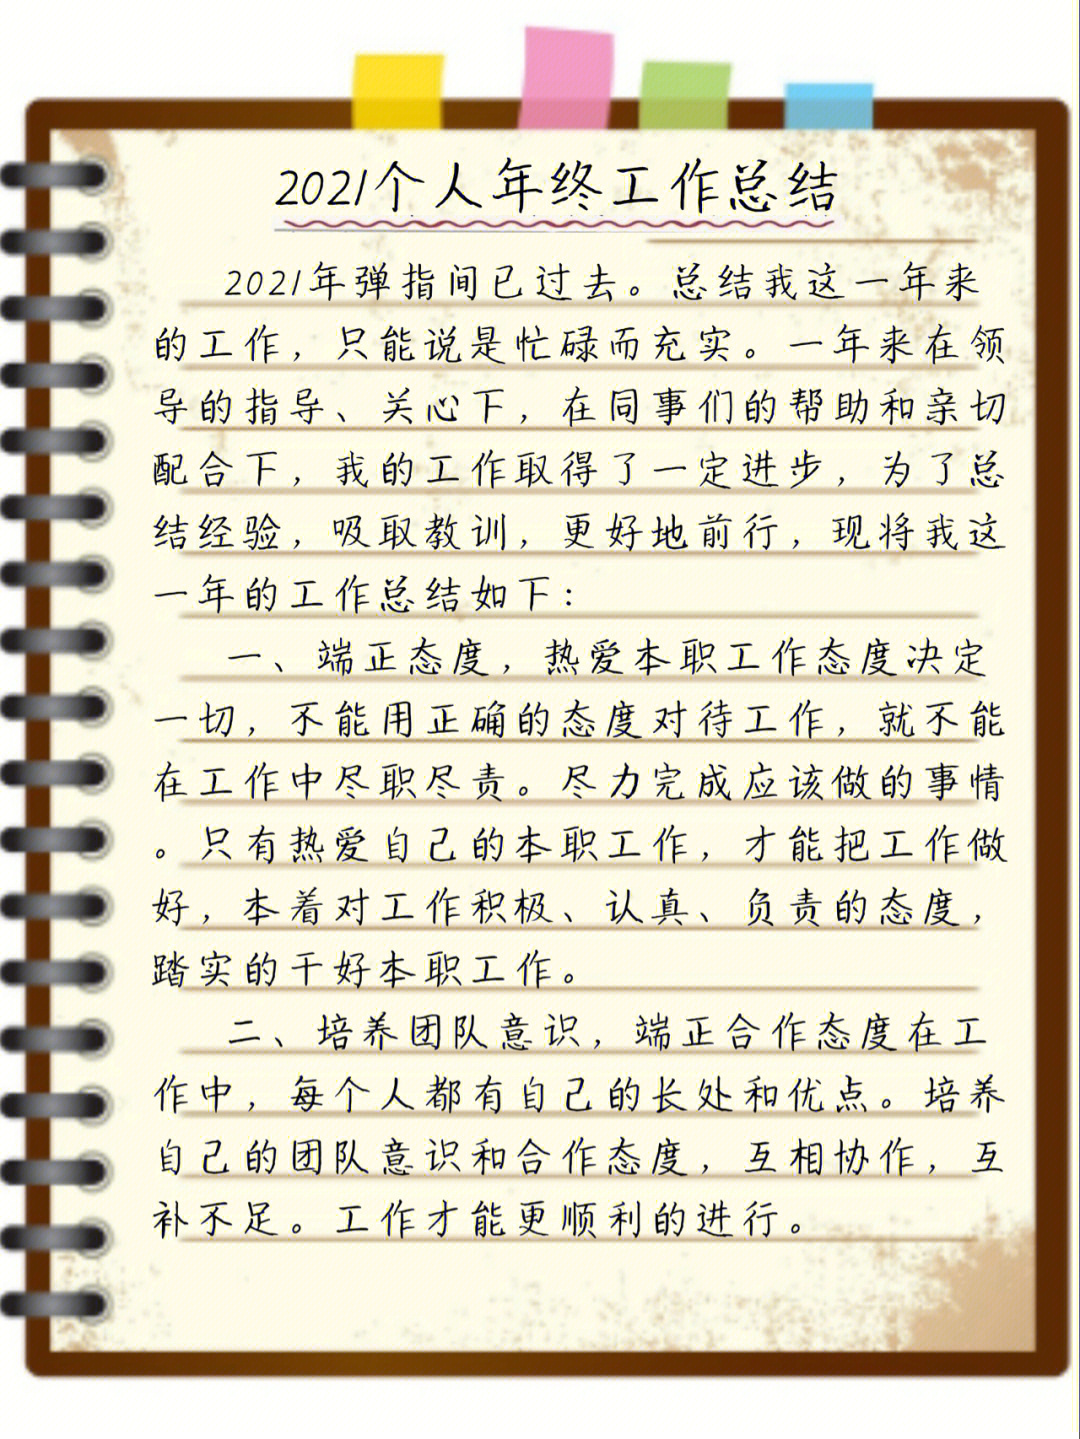 2021个人年终工作总结
2021年弹指间已过去。总结我这一年来
的工作，只能说是忙碌而充实。一年来在领
导的指导、关心下，在同事们的帮助和亲切
配合下，我的工作取得了一定进步，为了总
结经验，吸取教训，更好地前行，现将我这
一年的工作总结如下：
一、端正态度，热爱本职工作态度决定
一切，不能用正确的态度对待工作，就不能
在工作中尽职尽责。尽力完成应该做的事情
。只有热爱自己的本职工作，才能把工作做
好，本着对工作积极、认真、负责的态度，
踏实的干好本职工作。
二、培养团队意识，端正合作态度在工
作中，每个人都有自己的长处和优点。培养
自己的团队意识和合作态度，互相协作，互
补不足。工作才能更顺利的进行。